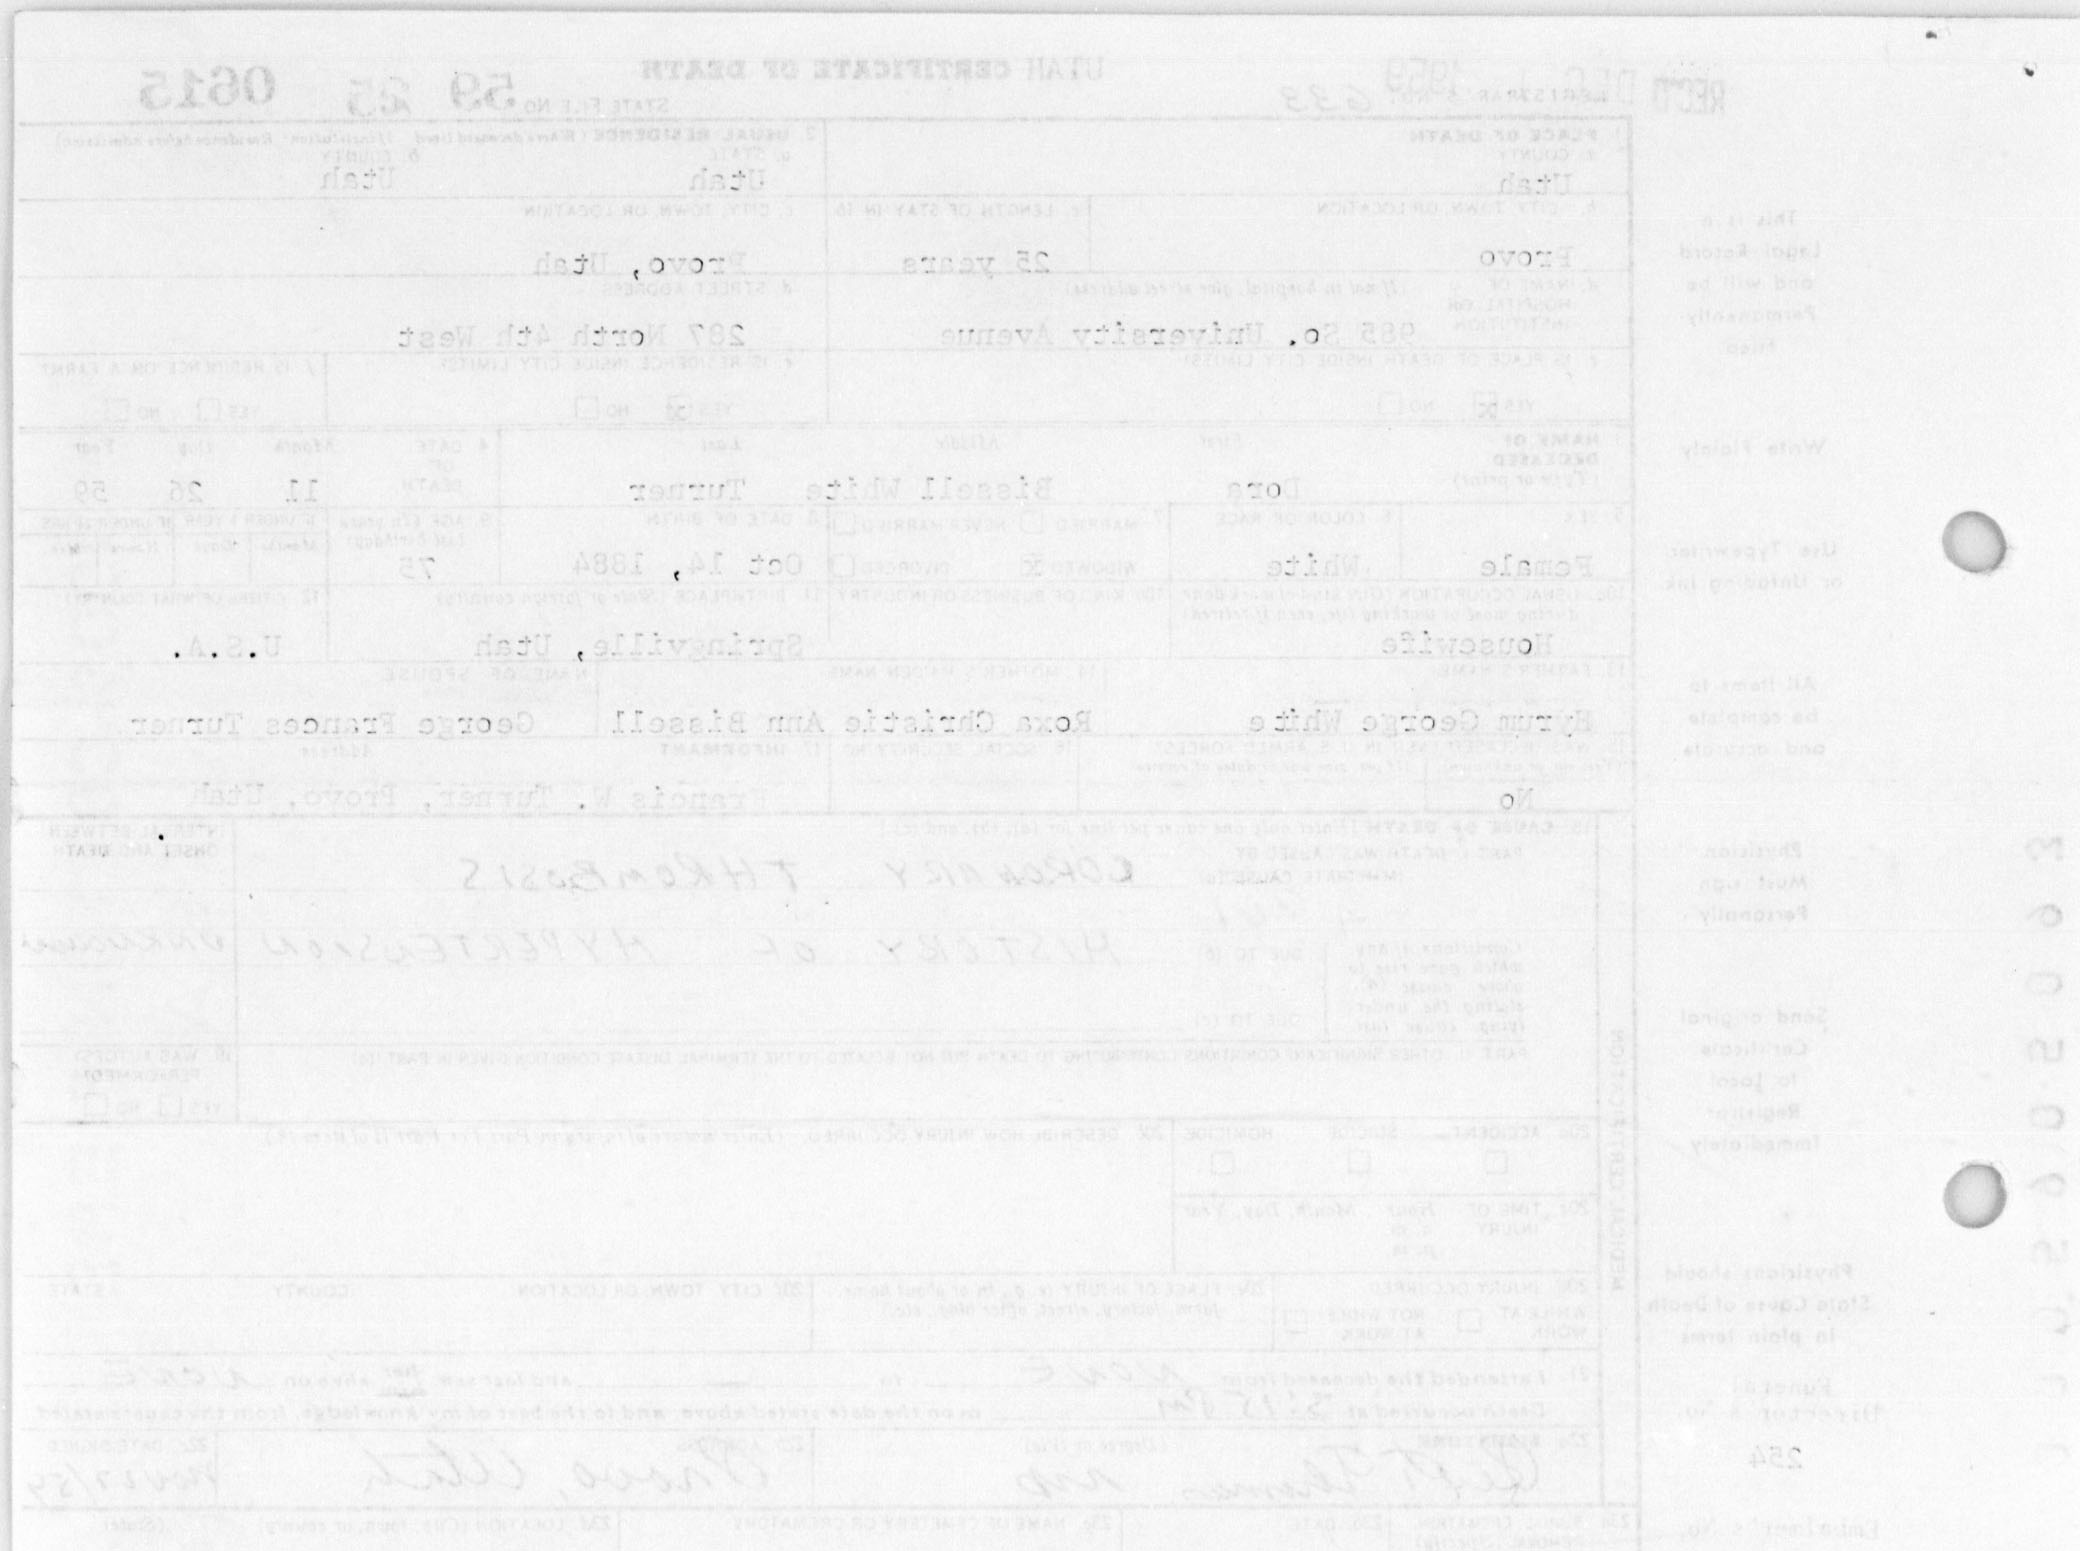 REC'D DEC 1 1959
UTAH CERTIFICATE OF DEATH
REGISTRAR'S NO. 633 STATE FILE NO. 59 25 0615
1. PLACE OF DEATH
a. COUNTY
Utah
2. USUAL RESIDENCE (Where deceased lived. If institution: Residence before admission)
a. STATE
Utah
b. COUNTY
Utah
b. CITY, TOWN, OR LOCATION
Provo
c. LENGTH OF STAY IN 1b
25 years
c. CITY, TOWN, OR LOCATION
Provo, Utah
d. NAME OF HOSPITAL OR INSTITUTION (If not in hospital, give street address)
985 So. University Avenue
d. STREET ADDRESS
287 North 4th West
e. IS PLACE OF DEATH INSIDE CITY LIMITS?
YES x NO
e. IS RESIDENCE INSIDE CITY LIMITS?
YES x NO
f. IS RESIDENCE ON A FARM?
YES NO
3. NAME OF DECEASED (Type or print)
First Middle Last
Dora Bissell White Turner
4. DATE OF DEATH
Month Day Year
11 26 59
5. SEX
Female
6. COLOR OR RACE
White
7. MARRIED NEVER MARRIED
WIDOWED x DIVORCED
8. DATE OF BIRTH
Oct 14, 1884
9. AGE (In years last birthday)
75
IF UNDER 1 YEAR IF UNDER 24 HRS
Months Days Hours Min.
10a. USUAL OCCUPATION (Give kind of work done during most of working life, even if retired)
Housewife
10b. KIND OF BUSINESS OR INDUSTRY
11. BIRTHPLACE (State or foreign country)
Springville, Utah
12. CITIZEN OF WHAT COUNTRY?
U.S.A.
13. FATHER'S NAME
Hyrum George White
14. MOTHER'S MAIDEN NAME
Roxa Christie Ann Bissell
NAME OF SPOUSE
George Frances Turner
15. WAS DECEASED EVER IN U.S. ARMED FORCES?
(Yes, no, or unknown) (If yes, give war or dates of service)
No
16. SOCIAL SECURITY NO.
17. INFORMANT Address
Francis W. Turner, Provo, Utah
18. CAUSE OF DEATH [Enter only one cause per line for (a), (b), and (c).]
INTERVAL BETWEEN ONSET AND DEATH
PART I. DEATH WAS CAUSED BY:
IMMEDIATE CAUSE (a) CORONARY THROMBOSIS
Conditions, if any, which gave rise to above cause (a), stating the underlying cause last.
DUE TO (b) HISTORY OF HYPERTENSION UNKNOWN
DUE TO (c)
PART II. OTHER SIGNIFICANT CONDITIONS CONTRIBUTING TO DEATH BUT NOT RELATED TO THE TERMINAL DISEASE CONDITION GIVEN IN PART I(a)
19. WAS AUTOPSY PERFORMED?
YES NO
MEDICAL CERTIFICATION
20a. ACCIDENT SUICIDE HOMICIDE
20b. DESCRIBE HOW INJURY OCCURRED. (Enter nature of injury in Part I or Part II of item 18.)
20c. TIME OF INJURY Hour Month, Day, Year
a.m.
p.m.
20d. INJURY OCCURRED
WHILE AT WORK NOT WHILE AT WORK
20e. PLACE OF INJURY (e.g., in or about home, farm, factory, street, office bldg., etc.)
20f. CITY, TOWN, OR LOCATION COUNTY STATE
21. I attended the deceased from NONE to and last saw her alive on NONE
Death occurred at 5:15 pm on the date stated above, and to the best of my knowledge, from the causes stated.
22a. SIGNATURE (Degree or title)
MD
22b. ADDRESS
Provo, Utah
22c. DATE SIGNED
23a. BURIAL, CREMATION, REMOVAL (Specify)
23b. DATE
23c. NAME OF CEMETERY OR CREMATORY
23d. LOCATION (City, town, or county) (State)
This is a
Legal Record
and will be
Permanently
filed
Write Plainly
Use Typewriter
or Unfading Ink
All items to
be complete
and accurate
Physician
Must sign
Personally
Send original
Certificate
to Local
Registrar
Immediately
Physicians should
State Cause of Death
in plain terms
Funeral
Director's No.
254
Embalmer's No.